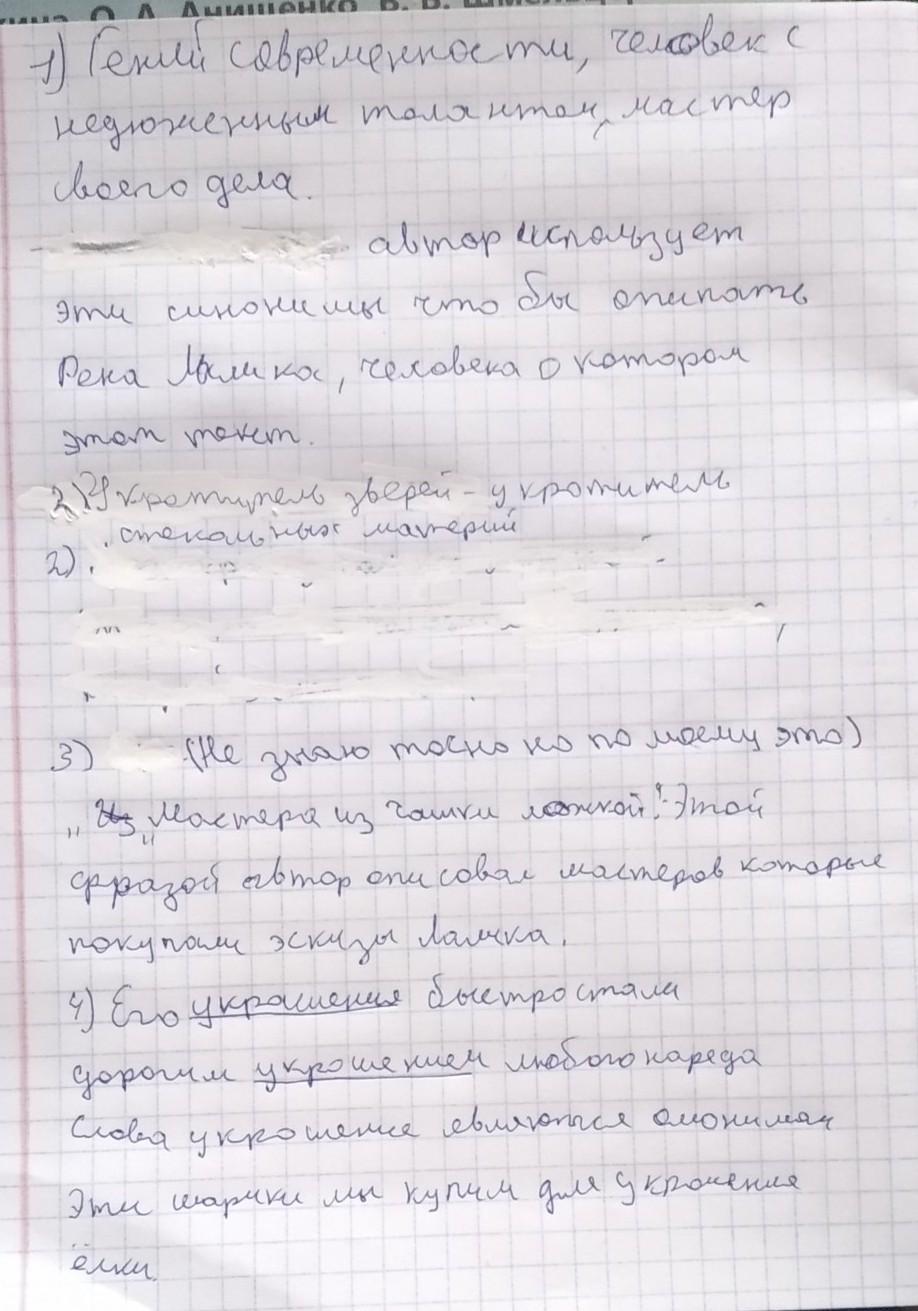 О. А. Анищенко В. В.
1) Гений современности, человек с
недюженным талантом, мастер
своего дела.
автор использует
эти синонимы что бы описать
Рене Лалика, человека о котором
этот текст.
2) Укротитель зверей - укротитель
стекольных материй
2).
3) (Не знаю точно но по моему это)
„Из „Мастера из чашки ложкой". Этой
фразой автор описовал мастеров которые
покупали эскизы Лалика.
4) Его украшения быстро стали
дорогим укрошением любого нареда
Слова укрошение являются омонимам
Эти шарики мы купим для укрошения
ёлки.